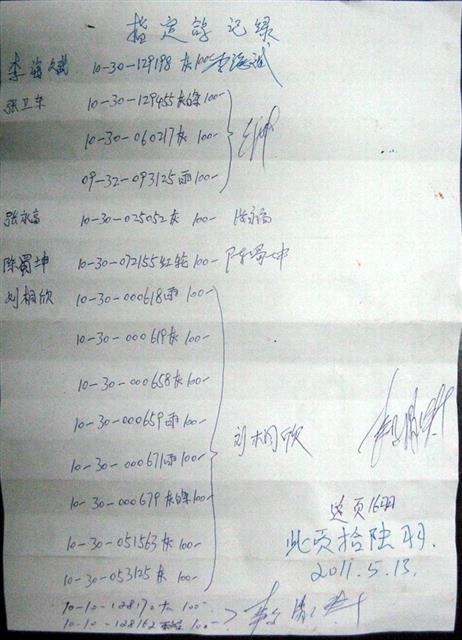 指定鸽记录
李海斌 10-30-129198 灰 100- 李海斌
张卫东 10-30-129455 灰白条 100-
10-30-060217 灰 100-
09-32-093125 雨 100-
张永高 10-30-025052 灰 100-
陈蜀坤 10-30-072155 红轮 100- 陈蜀坤
刘相欣 10-30-000618 雨 100-
10-30-000619 灰 100-
10-30-000658 灰 100-
10-30-000659 雨 100-
10-30-000671 雨 100-
刘相欣
10-30-000679 灰白条 100-
10-30-051563 灰 100-
10-30-053125 灰 100-
这页16羽
此页拾陆羽.
2011.5.13.
10-10-128170 灰 100-
10-10-128162 100-